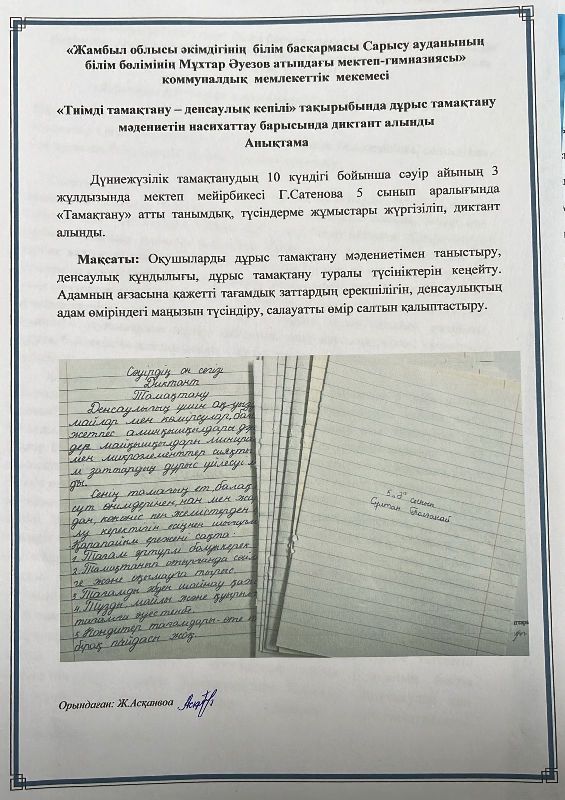 «Жамбыл облысы әкімдігінің білім басқармасы Сарысу ауданының
білім бөлімінің Мұхтар Әуезов атындағы мектеп-гимназиясы»
коммуналдық мемлекеттік мекемесі
«Тиімді тамақтану – денсаулық кепілі» тақырыбында дұрыс тамақтану
мәдениетін насихаттау барысында диктант алынды
Анықтама
Дүниежүзілік тамақтанудың 10 күндігі бойынша сәуір айының 3
жұлдызында мектеп мейірбикесі Г.Сатенова 5 сынып аралығында
«Тамақтану» атты танымдық, түсіндерме жұмыстары жүргізіліп, диктант
алынды.
Мақсаты: Оқушыларды дұрыс тамақтану мәдениетімен таныстыру,
денсаулық құндылығы, дұрыс тамақтану туралы түсініктерін кеңейту.
Адамның ағзасына қажетті тағамдық заттардың ерекшілігін, денсаулықтың
адам өміріндегі маңызын түсіндіру, салауатты өмір салтын қалыптастыру.
Сәуірдің он сегізі
Диктант
Тамақтану
Денсаулығың үшін ақ уыз
майлар мен көмірсулар,
жетпес аминқышқылдары
дер майқышқылдары минерал
мен микроэлементтер сияқты
м заттардың дұрыс үйлесуі
ды.
Сенің тамағың ет, балақ
сүт өнімдерінен, нан мен
дан, көкөніс пен жемістерден
лу керектігін есіңнен шығарма
Қарапайым ережені сақта.
1. Тағам әртүрлі болу керек
2. Тамақтанып отырғанда сөйле
ге және оқымауға тырыс.
3. Тағамды әбден шайнау қаж
4. Тұзды майлы және қуырылған
тағамға әуестенбе.
5. Кондитер тағамдары өте
бірақ пайдасы жоқ.
5 "Ә" сынып
Сұлтан
Орындаған: Ж.Асқанвоа